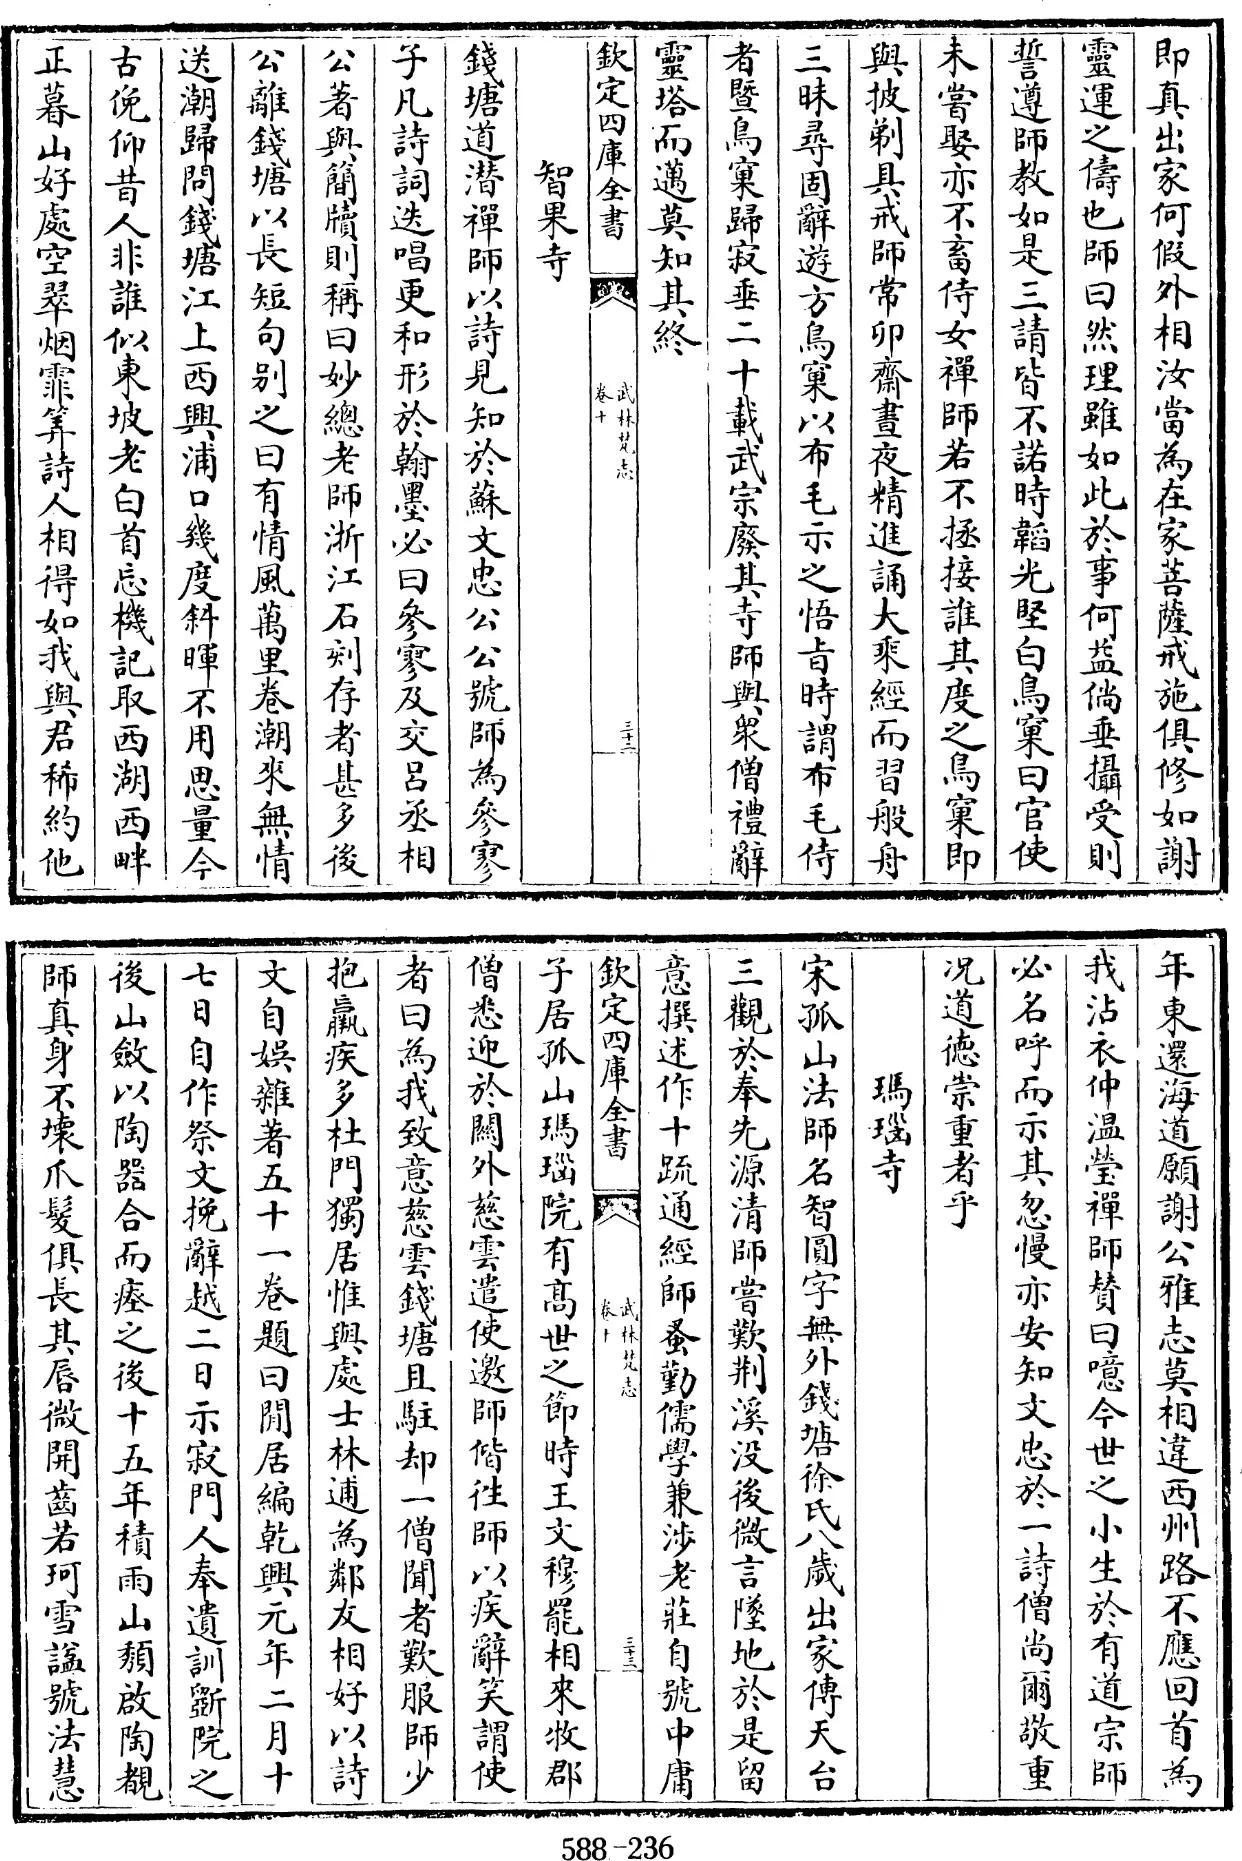 即真出家何假外相汝當為在家菩薩戒施俱修如謝
靈運之儔也師曰然理雖如此於事何益倘垂攝受則
誓遵師教如是三請皆不諾時韜光堅白鳥窠曰官使
未嘗娶亦不畜侍女禪師若不拯接誰其度之鳥窠即
與披剃具戒師常卯齋晝夜精進誦大乘經而習般舟
三昧尋固辭遊方鳥窠以布毛示之悟旨時謂布毛侍
者暨鳥窠歸寂垂二十載武宗廢其寺師與衆僧禮辭
靈塔而邁莫知其終
欽定四庫全書
武林梵志
卷十
三十二
智果寺
錢塘道潛禪師以詩見知於蘇文忠公公號師為參寥
子凡詩詞迭唱更和形於翰墨必曰參寥及交呂丞相
公著與簡牘則稱曰妙總老師浙江石刻存者甚多後
公離錢塘以長短句別之曰有情風萬里卷潮來無情
送潮歸問錢塘江上西興浦口幾度斜暉不用思量今
古俛仰昔人非誰似東坡老白首忘機記取西湖西畔
正暮山好處空翠烟霏筭詩人相得如我與君稀約他
年東還海道願謝公雅志莫相違西州路不應回首為
我沾衣仲温瑩禪師賛曰噫今世之小生於有道宗師
必名呼而示其忽慢亦安知文忠於一詩僧尚爾敬重
况道德崇重者乎
瑪瑙寺
宋孤山法師名智圓字無外錢塘徐氏八歲出家傳天台
三觀於奉先源清師嘗歎荆溪没後微言墜地於是留
意撰述作十疏通經師蚤勤儒學兼涉老莊自號中庸
欽定四庫全書
武林梵志
卷十
三十三
子居孤山瑪瑙院有髙世之節時王文穆罷相來牧郡
僧悉迎於關外慈雲遣使邀師偕徃師以疾辭笑謂使
者曰為我致意慈雲錢塘且駐却一僧聞者歎服師少
抱羸疾多杜門獨居惟與處士林逋為鄰友相好以詩
文自娛雜著五十一卷題曰閒居編乾興元年二月十
七日自作祭文挽辭越二日示寂門人奉遺訓斵院之
後山斂以陶器合而瘞之後十五年積雨山頹啟陶觀
師真身不壞爪髮俱長其唇微開齒若珂雪諡號法慧
588-236